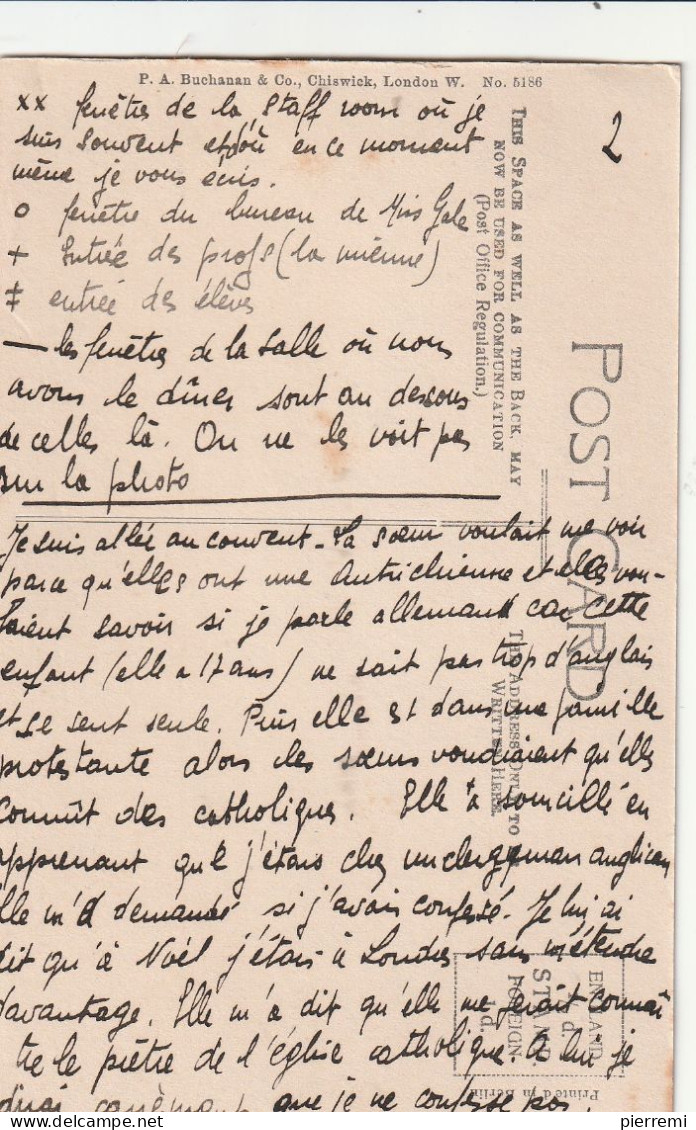 P. A. Buchanan & Co., Chiswick, London W. No. 5186
2
xx fenêtres de la staff room où je
suis souvent et d'où en ce moment
même je vous écris.
o fenêtre du bureau de Miss Gale
+ Entrée des profs (la mienne)
‡ entrée des élèves
— les fenêtres de la salle où nous
avons le dîner sont au dessous
de celles là. On ne les voit pas
sur la photo
Je suis allée au couvent - La sœur voulait me voir
parce qu'elles ont une Autrichienne et elles vou-
laient savoir si je parle allemand car cette
enfant (elle a 17 ans) ne sait pas trop d'anglais
et se sent seule. Puis elle est dans une famille
protestante alors les sœurs voudraient qu'elle
connût des catholiques. Elle a sourcillé en
apprenant que j'étais chez un clergyman anglican
Elle m'a demandé si j'avais confessé. Je lui ai
dit qu'à Noël j'étais à Londres sans m'étendre
davantage. Elle m'a dit qu'elle me ferait connaî
tre le prêtre de l'église catholique. A lui je
dirai carrément que je ne confesse pas.
THIS SPACE AS WELL AS THE BACK, MAY
NOW BE USED FOR COMMUNICATION
(Post Office Regulation.)
POST CARD
THE ADDRESS ONLY TO
WRITTEN HERE.
ENGLAND
d.
STAMP.
FOREIGN
1d.
Printed in Berlin